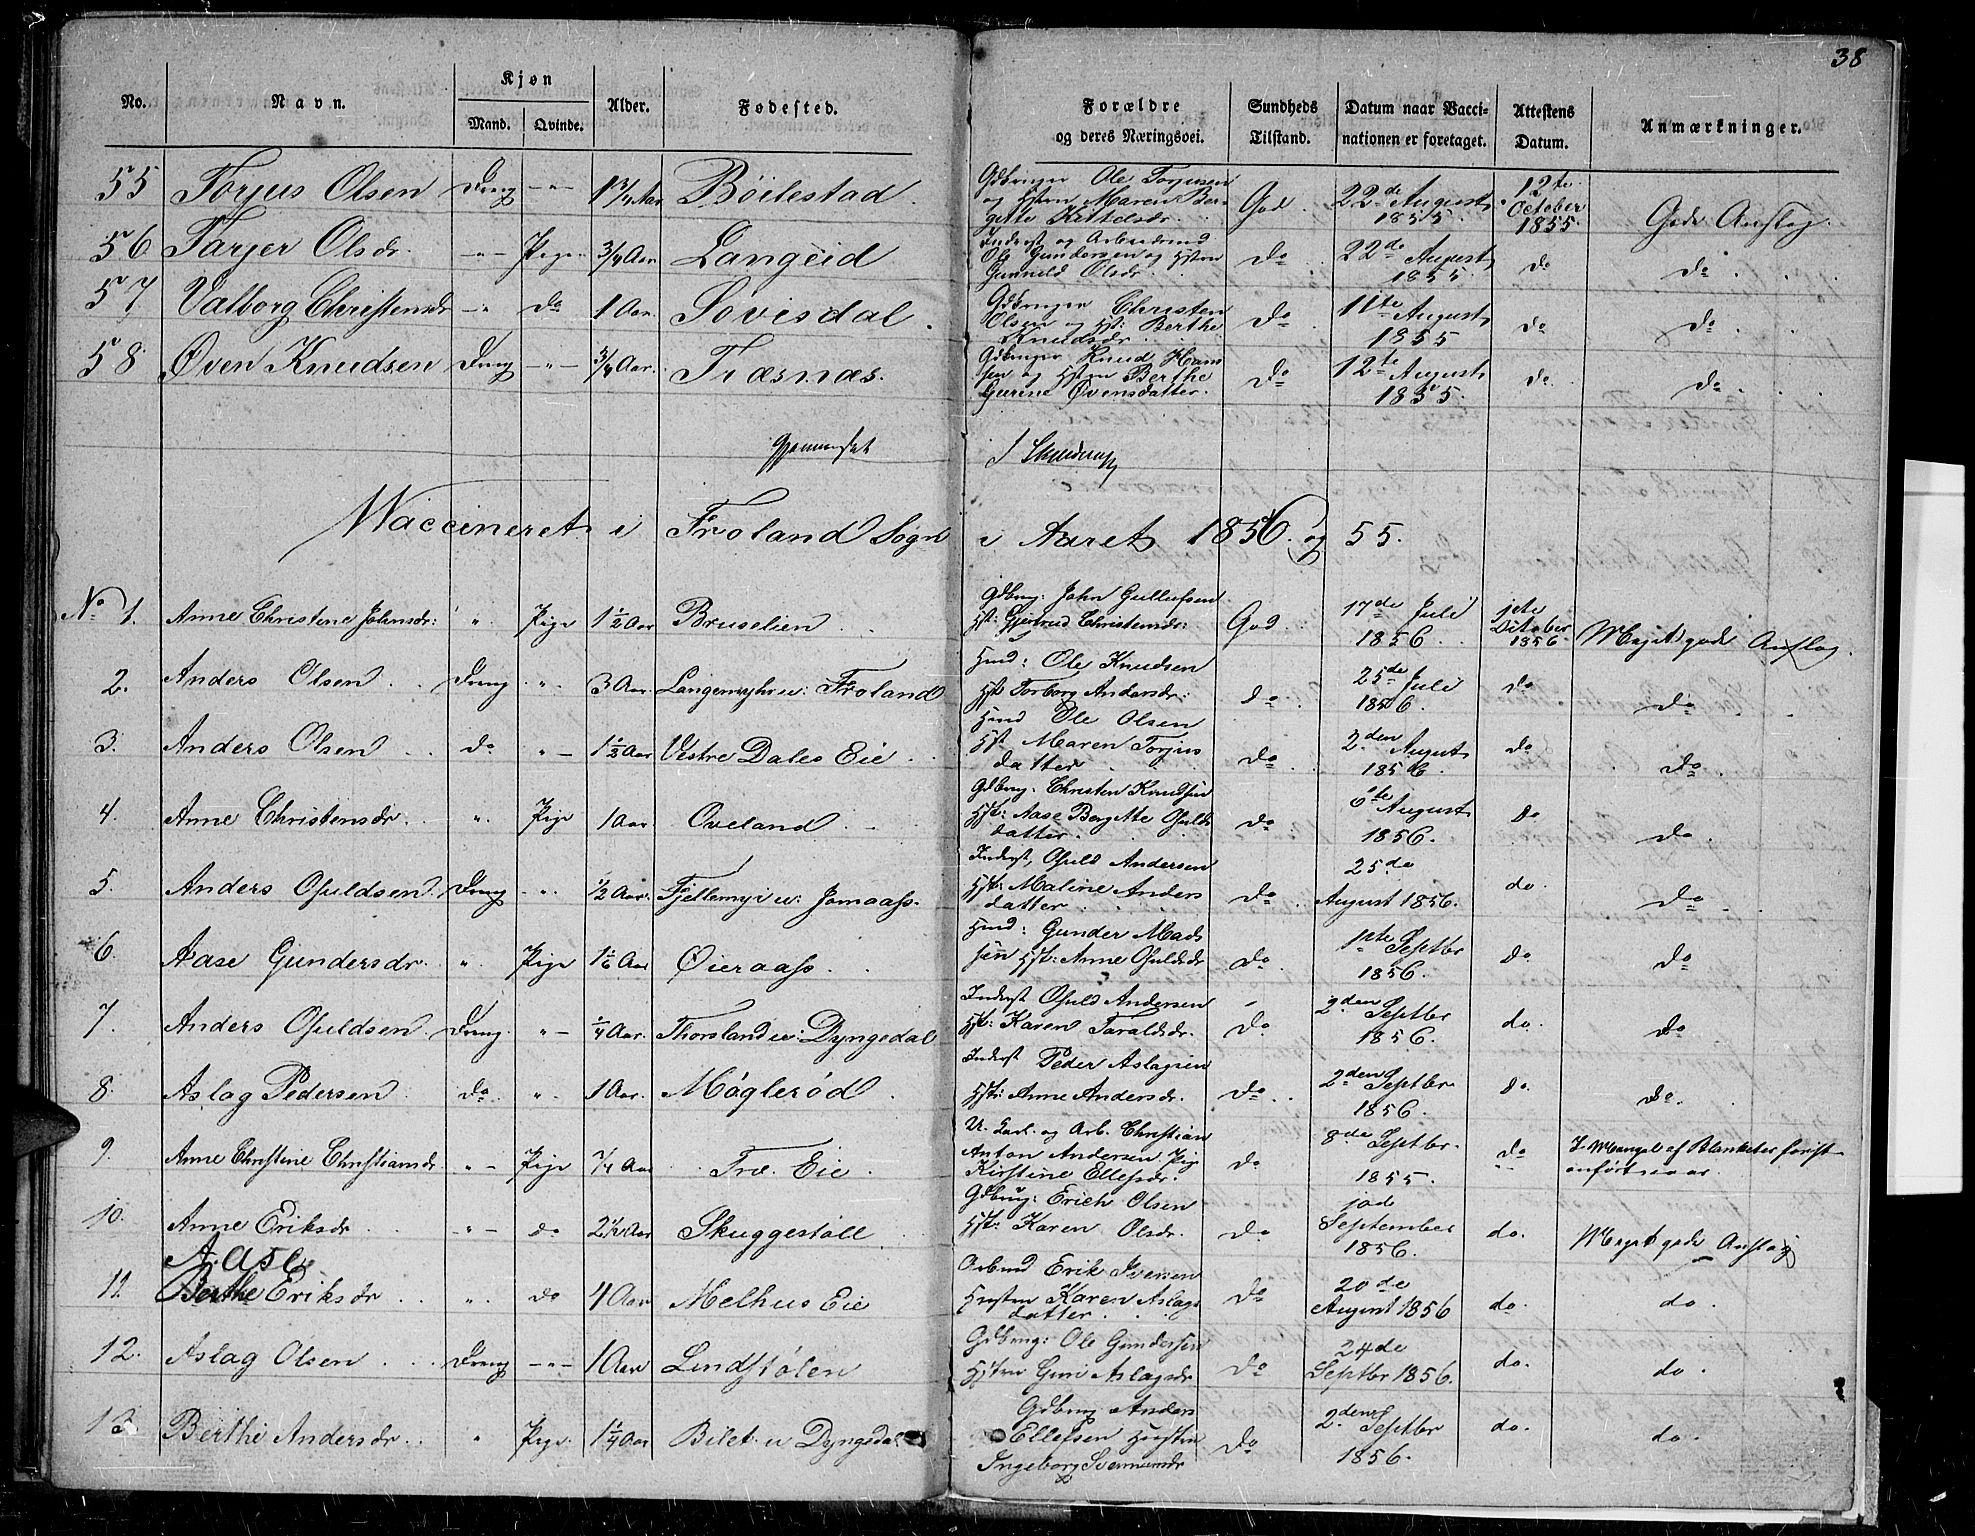 38
No. Navn. Kjøn Mand. Qvinde. Alder. Fødested. Forældre og deres Næringsvei. Sundheds Tilstand. Datum naar Vaccinationen er foretaget. Attestens Datum. Anmærkninger.
55 Torjus Olsen Dreng -"- 1 3/4 Aar Böilestad. Gdbruger Ole Torjusen og Hstru Maren Bergitte Kittelsdr. God 22de August 1855. 12te October 1855. Gode Anslag.
56 Tarjer Olsdr. -"- Pige 3/4 Aar Langeid Inderst og Arbeidsmd Ole Gundersen og Hstru Gunnild Olsdr. do 22de August 1855. do do
57 Valborg Christensdr -"- do 1 Aar. Sövisdal. Gdbruger Christen Olsen og Hst: Berthe Knudsdr do 11te August 1855 do do
58 Øven Knudsen Dreng -"- 3/4 Aar. Træsnæs. Gdbruger Knud Hansen og Hstru Berthe Gurine Øvensdatter. do 12te August 1855. do do
Gjennemseet
Waccineret i Froland Sogn i Aaret 1856. og 55.
No 1. Anne Christine Johnsdr: " Pige 1 1/2 Aar Bruselien Gdbrug: John Gullufsen Hst: Gjertrud Christensdr: God 17de Juli 1856 1ste October 1856 Meget gode Anslag.
2. Anders Olsen Dreng " 3 Aar Langemyhr u: Froland Hmd: Ole Knudsen Hst Torborg Andersdr: do 25de Juli 1856. do do
3. Anders Olsen do " 1 1/2 Aar Vestre Dales Eie Hmd Ole Olsen Hst Maren Torjusdatter do 2den August 1856. do do
4. Anne Christensdr. " Pige 1 Aar Oveland Gdbrug. Christen Knudsen Hst: Aase Bergitte Osulds datter. do 6te August 1856. do do
5. Anders Osuldsen. Dreng " 1/2 Aar. Fjellemyr u: Jomaass. Inderst, Osuld Andersen Hst: Maline Andersdatter do 25de August 1856. do. do
6. Aase Gundersdr. " Pige 1 1/6 Aar Øieraass. Hmd: Gunder Madsen Hst: Anne Osuldsdr do 1ste Septbr 1856. do. do
7. Anders Osuldsen. Dreng. " 1/4 Aar. Thorsland u: Dyngedal Inderst Osuld Andersen Hst: Karen Taraldsdr. do 2den Septbr 1856. do. do
8. Aslag Pedersen do " 1 Aar. Møglerød Inderst Peder Aslagsen Hst: Anne Andersdr. do 2den Septbr 1856. do. do.
9. Anne Christine Christiansdr " Pige 7/4 Aar Fro. Eie. U. Karl. og Arb. Christian Anton Andersen Pige Kirstine Ellefsdr. do 8de Septbr. 1855. do I Mangel af Blanketter forist anført iaar.
10. Anne Eriksdr. " do 2 1/2 Aar Skuggestöll Gdbrug: Erich Olsen Hst: Karen Olsdr. do September 1856. do. Meget gode Anslag
Aase
11. Berthe Eriksdr " do 4 Aar Melhus Eie Arbmd Erik Iversen Hustru Karen Aslagsdatter do 20de August 1856 do. do.
12. Aslag Olsen Dreng -"- 1 Aar Lindstölen Gdbrug: Ole Gundersen Hstru Guri Aslagsdr do 24de Septbr 1856. do. do.
13 Berthe Andersdr. " Pige 1 1/4 Aar Bilet u Dyngedal Gdbrug Anders Ellefsen Hustru Ingeborg do 2den Septbr 1856. do. do.